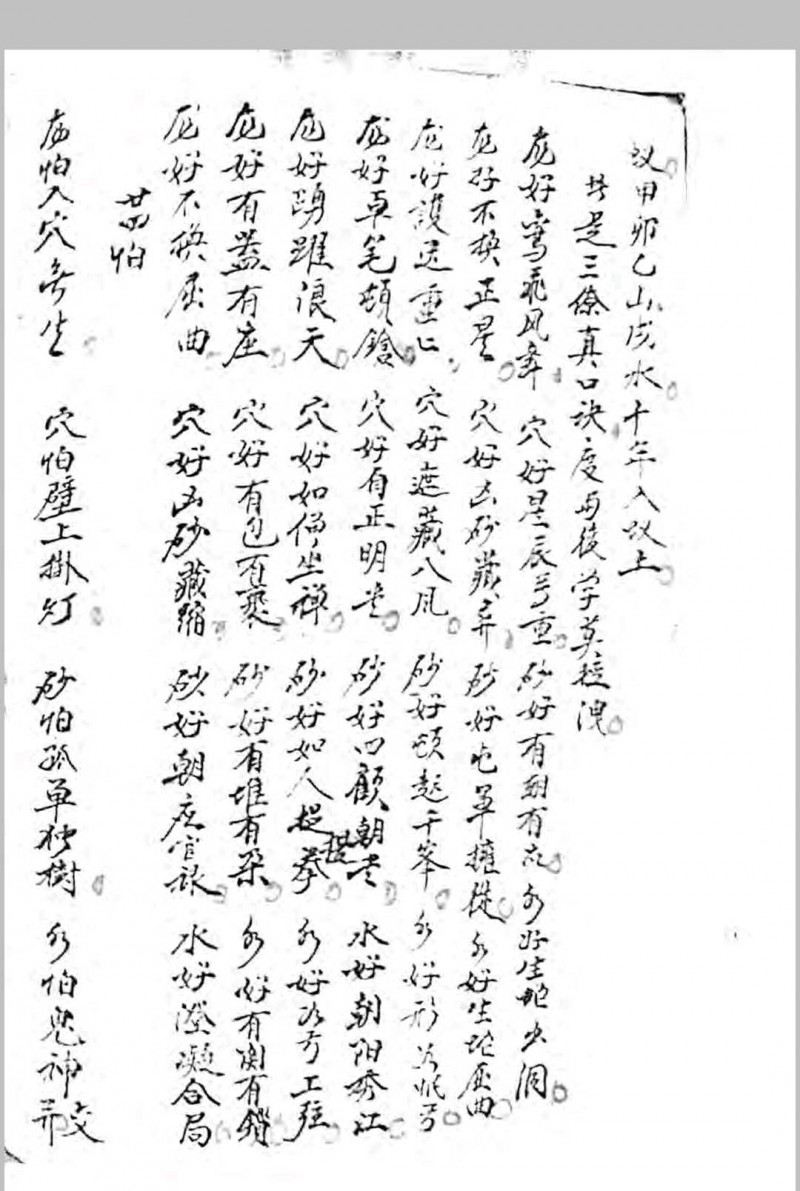 甲卯乙山戌水十年入以上
共是三條真口訣度与後学莫 洩
龙好鸾飛凤舞 穴好星辰 重 砂好有朝有 水好生蛇出洞
龙好不换正星 穴好 砂藏 砂好屯軍擁從 水好生蛇屈曲
龙好護送重〻 穴好遮藏八风 砂好頓起千峯 水好形
龙好卓笔頓鎗 穴好有正明堂 砂好回顧朝堂 水好朝阳秀江
龙好踴躍浪天 穴好如僧坐禅 砂好如人 拳 水好 工
龙好有蓋有座 穴好有包有裹 砂好有堆有朵 水好有関有鎖
龙好不换屈曲 穴好凶砂藏縮 砂好朝 官 水好澄凝合局
廿四怕
龙怕入穴無生 穴怕壁上掛灯 砂怕孤单独樹 水怕鬼神 交